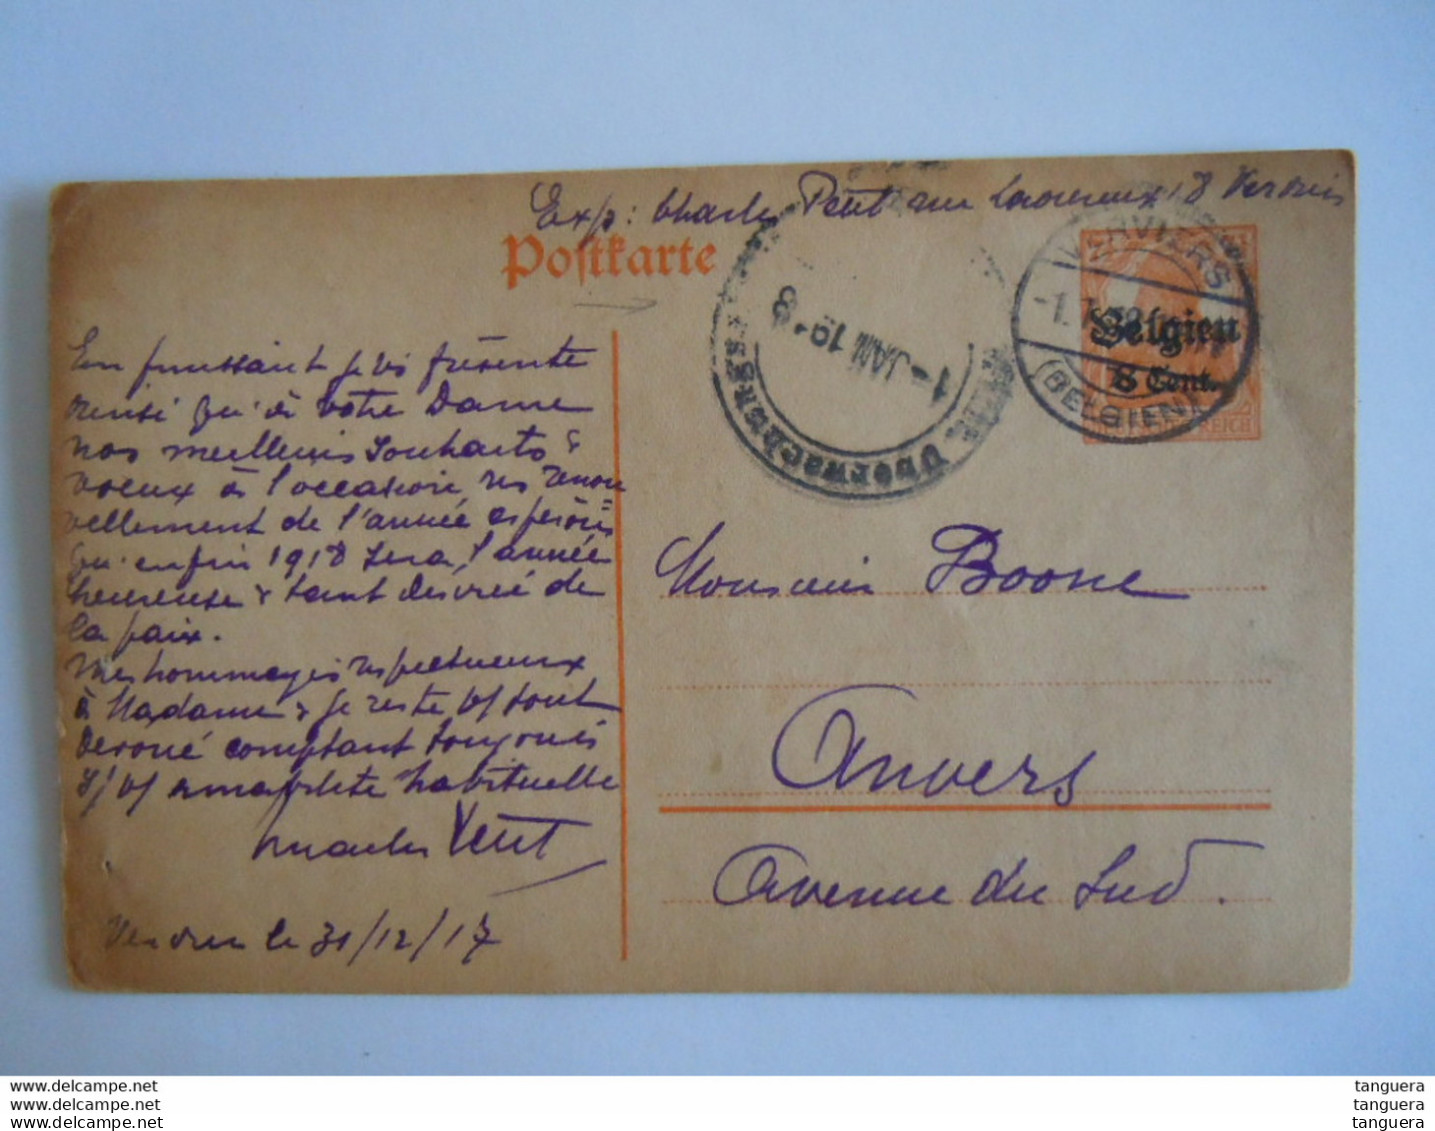 Exp: Charles Pent rue Laoureux 18 Verviers
Postkarte
Mil. Überwachungs
1 - JAN 19 8
VERVIERS
-1.1.18
(BELGIEN)
Belgien
8 Cent.
REICH
En puissant présente
ainsi qu'à votre Dame
nos meilleurs souhaits &
voeux à l'occasion du renou
vellement de l'année espérons
qu'enfin 1918 sera l'année
heureuse & tant désirée de
la paix.
Mes hommages respectueux
à Madame & je reste v/ tout
dévoué comptant toujours
s/ v/ amabilité habituelle
Charles Pent
Verviers le 31/12/17
Monsieur Boone
Anvers
Avenue du Sud.
www.delcampe.net
www.delcampe.net
www.delcampe.net
tanguera
tanguera
tanguera